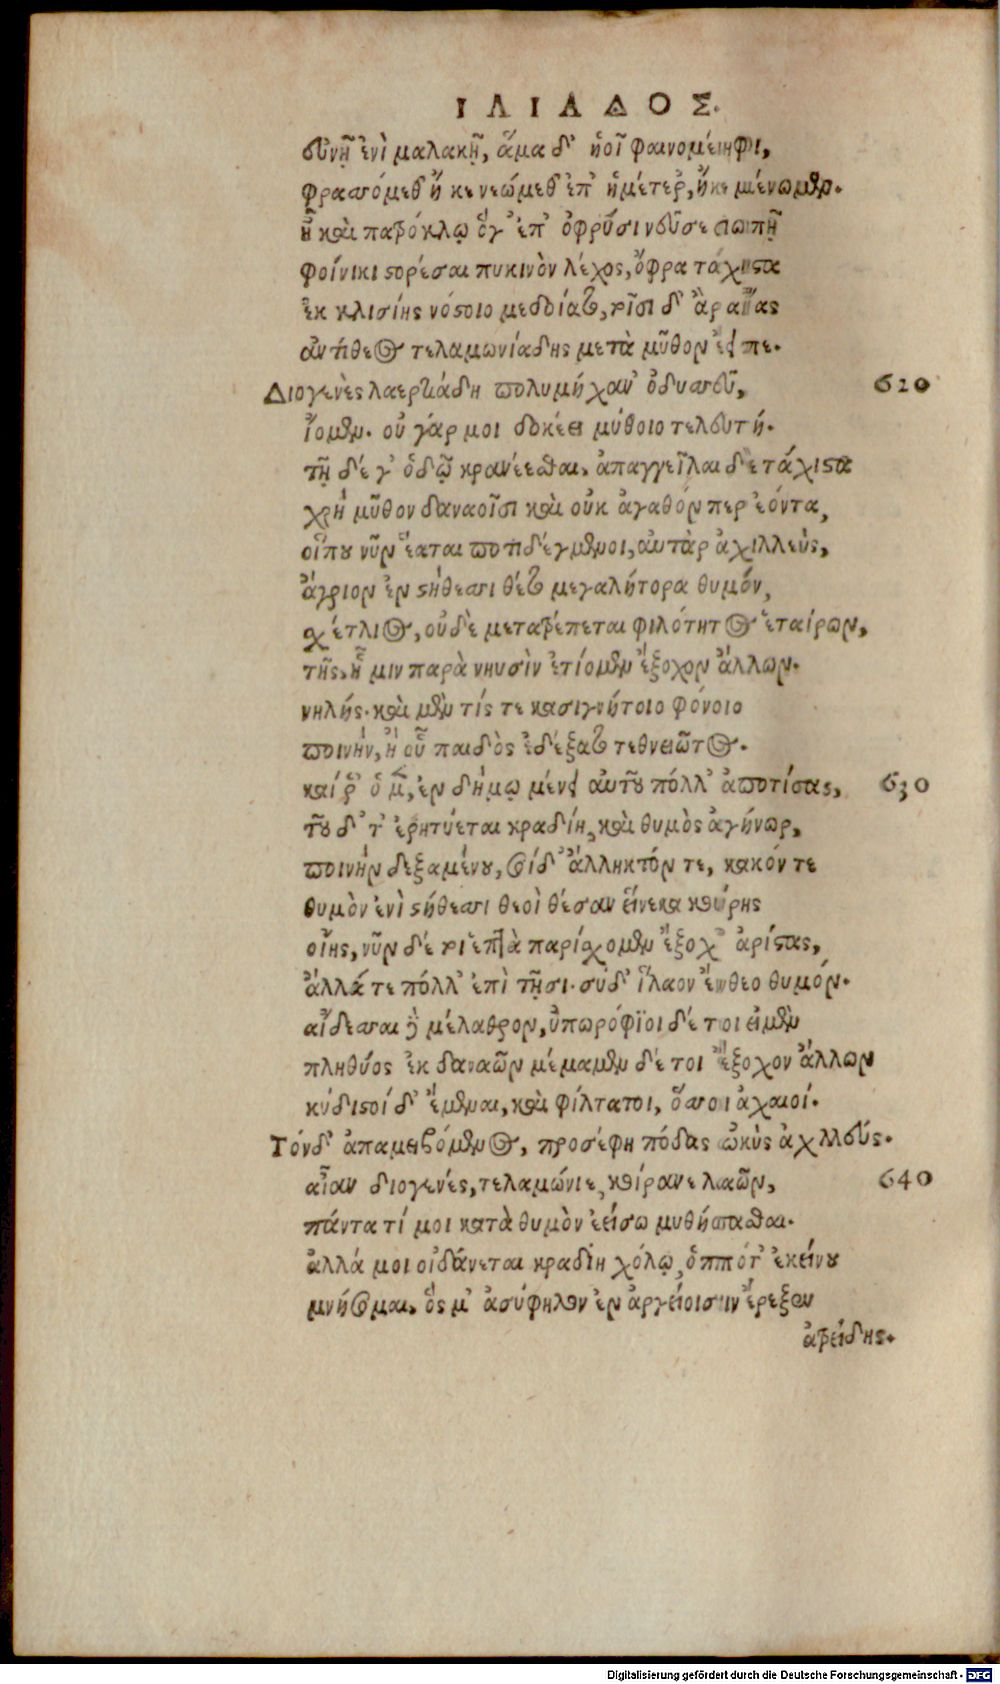 ΙΛΙΑΔΟΣ.
εὐνῇ ἐνὶ μαλακῇ, ἅμα δ' ἠοῖ φαινομένηφι,
φρασσόμεθ' ἤ κε νεώμεθ' ἐπ' ἡμέτερ', ἤ κε μένωμεν.
ἦ καὶ πατρόκλῳ ὅγ' ἐπ' ὀφρύσι νεῦσε σιωπῇ
φοίνικι στορέσαι πυκινὸν λέχος, ὄφρα τάχιστα
ἐκ κλισίης νόστοιο μεδοίατο, τοῖσι δ' ἄρ αἴας
ἀντίθεος τελαμωνιάδης μετὰ μῦθον ἔειπε.
Διογενὲς λαερτιάδη πολυμήχαν' ὀδυσσεῦ, 620
ἴομεν. οὐ γάρ μοι δοκέει μύθοιο τελευτή.
τῇ δέ γ' ὁδῷ κρανέεσθαι, ἀπαγγεῖλαι δὲ τάχιστα
χρὴ μῦθον δαναοῖσι καὶ οὐκ ἀγαθόν περ ἐόντα,
οἵ που νῦν ἕαται ποτιδέγμενοι, αὐτὰρ ἀχιλλεὺς,
ἄγριον ἐν στήθεσσι θέτο μεγαλήτορα θυμόν,
σχέτλιος, οὐδὲ μετατρέπεται φιλότητος ἑταίρων,
τῆς, ᾗ μιν παρὰ νηυσὶν ἐτίομεν ἔξοχον ἄλλων.
νηλής. καὶ μὲν τίς τε κασιγνήτοιο φόνοιο
ποινήν, ἢ οὗ παιδὸς ἐδέξατο τεθνειῶτος.
καί ῥ' ὁ μὲν, ἐν δήμῳ μένει αὐτοῦ πόλλ' ἀποτίσας, 630
τοῦ δ' τ' ἐρητύεται κραδίη, καὶ θυμὸς ἀγήνωρ,
ποινὴν δεξαμένου, σοὶ δ' ἄλληκτόν τε, κακόν τε
θυμὸν ἐνὶ στήθεσσι θεοὶ θέσαν εἵνεκα κούρης
οἴης, νῦν δέ τοι ἑπτὰ παρίσχομεν ἔξοχ' ἀρίστας,
ἄλλά τε πόλλ' ἐπὶ τῇσι. σὺ δ' ἵλαον ἔνθεο θυμόν.
αἴδεσσαι δὲ μέλαθρον, ὑπωρόφϊοι δέ τοι εἰμὲν
πληθύος ἐκ δαναῶν μέμαμεν δέ τοι ἔξοχον ἄλλων
κύδιστοί δ' ἔμεναι, καὶ φίλτατοι, ὅσσοι ἀχαιοί.
Τόνδ' ἀπαμειβόμενος, προσέφη πόδας ὠκὺς ἀχιλλεύς.
αἶαν διογενές, τελαμώνιε, κοίρανε λαῶν, 640
πάντα τί μοι κατὰ θυμὸν ἐείσω μυθήσασθαι.
ἀλλά μοι οἰδάνεται κραδίη χόλῳ, ὁππότ' ἐκείνου
μνήσομαι, ὅς μ' ἀσύφηλον ἐν ἀργείοισιν ἔρεξεν
ἀτρείδης.
Digitalisierung gefördert durch die Deutsche Forschungsgemeinschaft - DFG